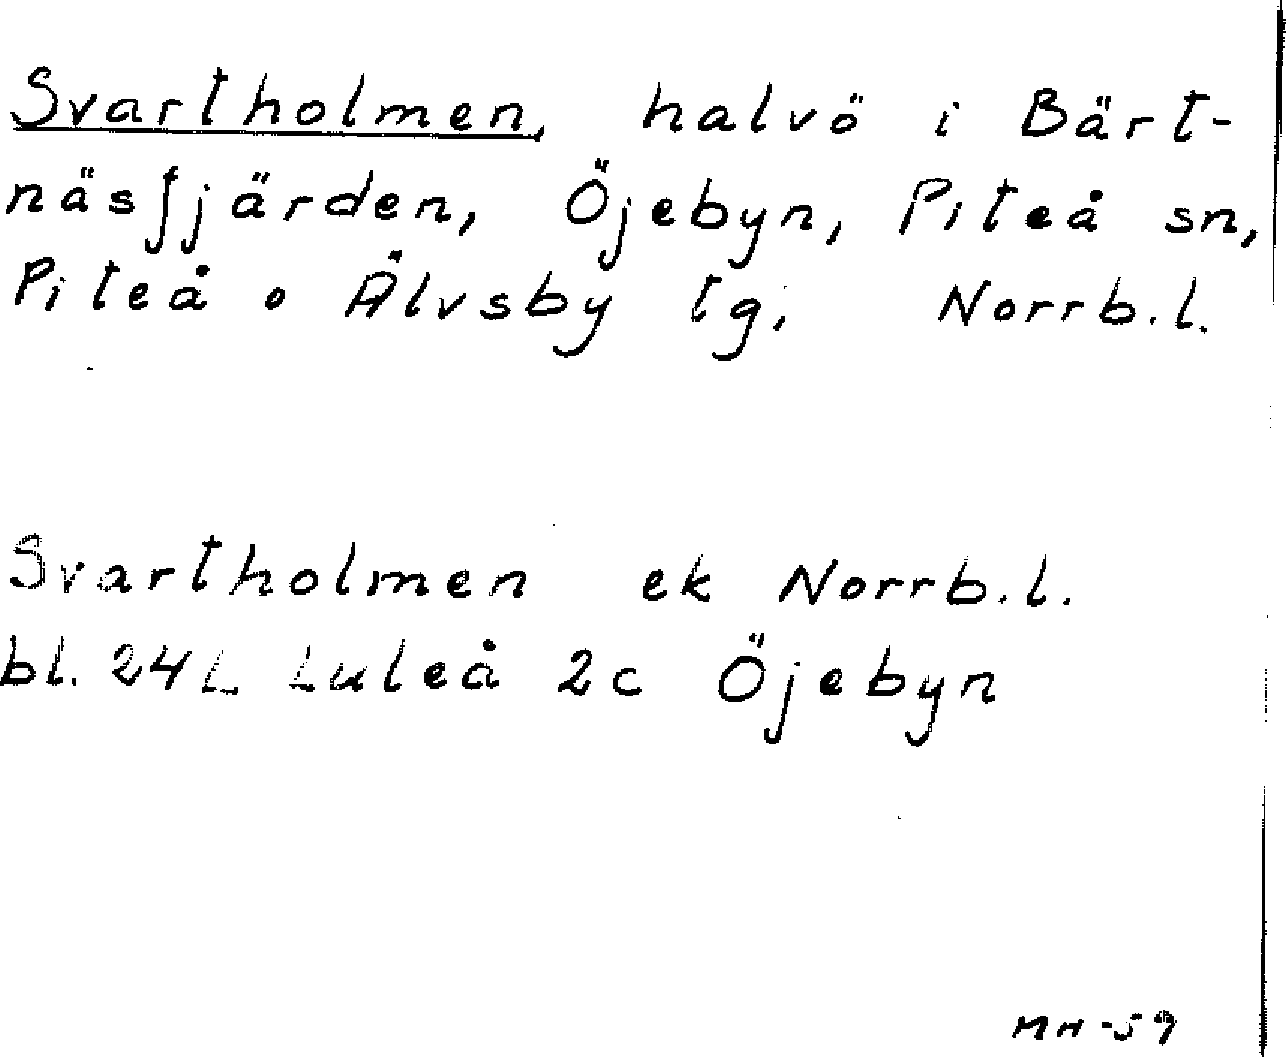 Svartholmen, halvö i Bärt-
näsfjärden, Öjebyn, Piteå sn,
Piteå o Älvsby tg, Norrb.l.
Svartholmen ek Norrb.l.
bl. 24L Luleå 2c Öjebyn
MH-59